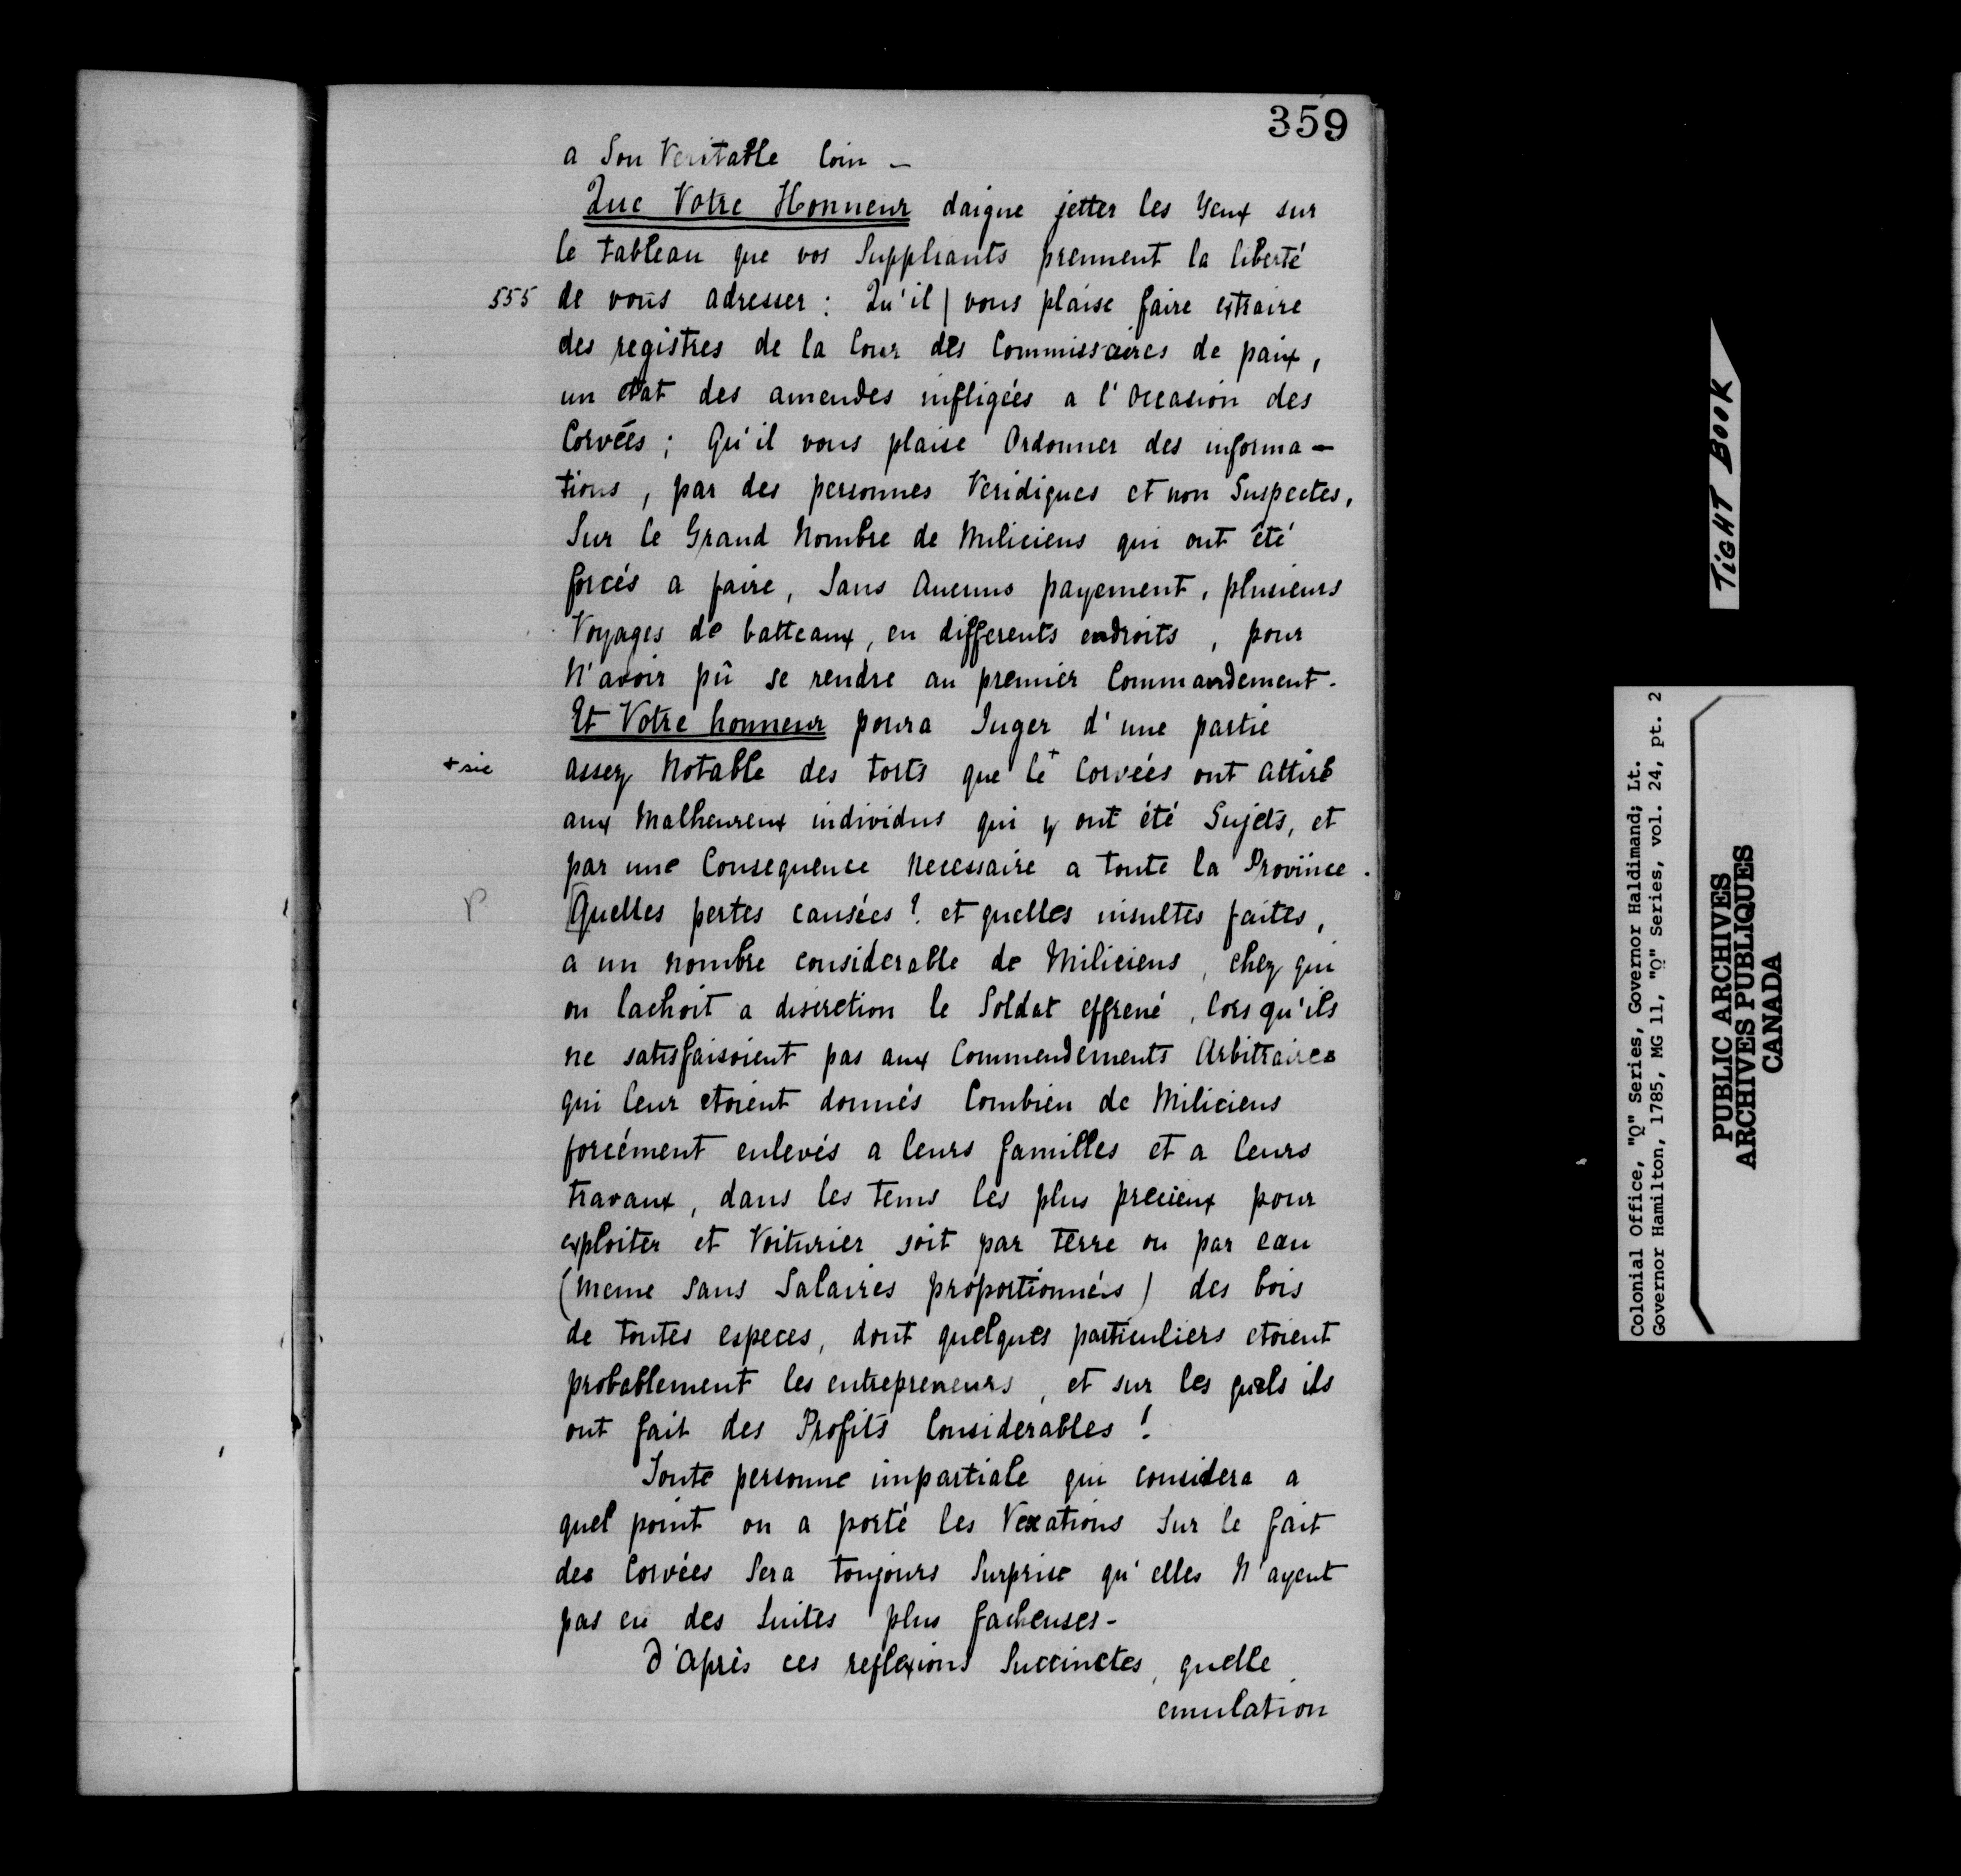 359
a Son Veritable Coin -
Que Votre Honneur daigne jetter les Yeux sur
le tableau que vos Suppliants prennent la liberté
555 de vous adresser : Qu'il | vous plaise faire extraire
des registres de la Cour des Commissaires de paix,
un etat des amendes infligées a l'Occasion des
Corvées ; Qu'il vous plaise Ordonner des informa-
tions, par des personnes Veridiques et non Suspectes,
Sur le Grand Nombre de Miliciens qui ont été
forcés a faire, Sans Aucuns payement, plusieurs
Voyages de batteaux, en differents endroits, pour
N'avoir pû se rendre au premier Commandement.
Et Votre honneur poura Juger d'une partie
+ sic assez Notable des torts que le+ Corvées ont attiré
aux Malheureux individus qui y ont été Sujets, et
par une Consequence Necessaire a toute la Province.
P [Quelles pertes causées ? et quelles insultes faites,
a un nombre considerable de Miliciens, chez qui
on lachoit a discretion le Soldat effrené, lors qu'ils
ne satisfaisoient pas aux Commendements Arbitraires
qui leur etoient donnés Combien de Miliciens
forcément enlevés a leurs familles et a leurs
travaux, dans les tems les plus precieux pour
exploiter et Voiturier soit par terre ou par eau
(Meme sans Salaires proportionnées) des bois
de toutes especes, dont quelques particuliers etoient
probablement les entrepreneurs, et sur les quels ils
ont fait des Profits Considerables !
Toute personne impartiale qui considera a
quel point on a porté les Vexations Sur le fait
des Corvées Sera toujours Surprise qu'elles N'ayent
pas eu des Suites plus facheuses -
D'Après ces reflexions Succinctes, quelle
emulation
TIGHT BOOK
Colonial Office, "Q" Series, Governor Haldimand; Lt.
Governor Hamilton, 1785, MG 11, "Q" Series, vol. 24, pt. 2
PUBLIC ARCHIVES
ARCHIVES PUBLIQUES
CANADA